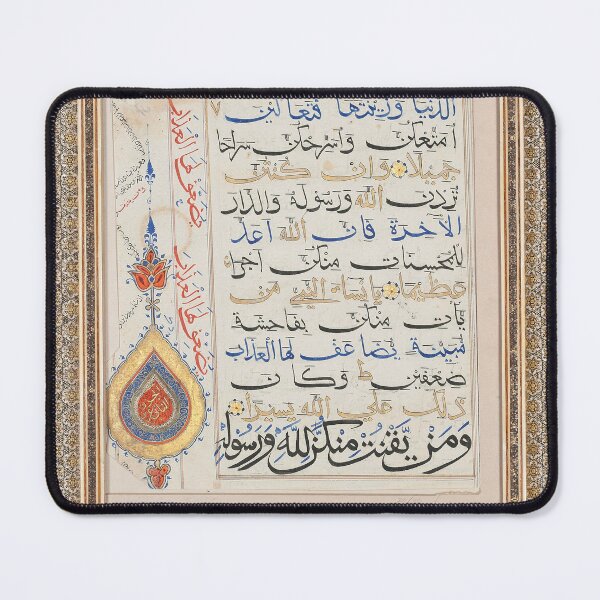 الدنيا وزينتها فتعالين
امتعكن واسرحكن سراحا
جميلا وان كنتن
تردن الله ورسوله والدار
الآخرة فان الله اعد
للمحسنات منكن اجرا
عظيما يا نساء النبي من
يات منكن بفاحشة
مبينة يضاعف لها العذاب
ضعفين وكان
ذلك على الله يسيرا
ومن يقنت منكن لله ورسوله
لها العذاب
لها العذاب